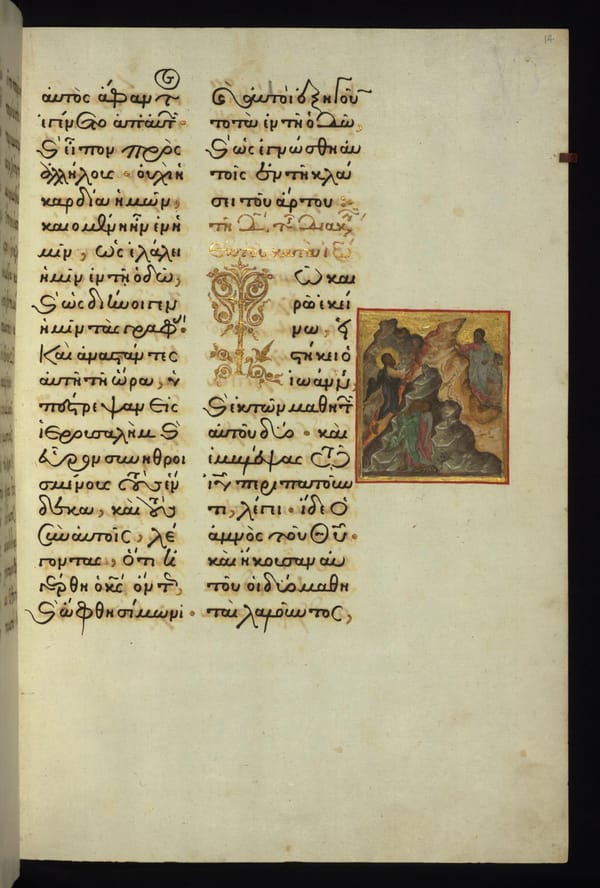 14
αὐτὸς ἄφαντος
ἐγένετο ἀπ' αὐτῶν·
καὶ εἶπον πρὸς
ἀλλήλους· οὐχὶ ἡ
καρδία ἡμῶν,
καιομένη ἦν ἐν ἡ
μῖν, ὡς ἐλάλει
ἡμῖν ἐν τῇ ὁδῷ,
καὶ ὡς διήνοιγεν
ἡμῖν τὰς γραφάς·
Καὶ ἀναστάντες
αὐτῇ τῇ ὥρᾳ, ὑ
πέστρεψαν εἰς
ἱερουσαλήμ καὶ
εὗρον συνηθροι
σμένους τοὺς ἕν
δεκα, καὶ τοὺς
σὺν αὐτοῖς, λέ
γοντας, ὅτι ἠ
γέρθη ὁ κς ὄντως
καὶ ὤφθη σίμωνι·
Καὶ αὐτοὶ ἐξηγοῦν
το τὰ ἐν τῇ ὁδῷ,
καὶ ὡς ἐγνώσθη αὐ
τοῖς ἐν τῇ κλά
σει τοῦ ἄρτου:
τῇ
Ἐκ τοῦ κατὰ ἰω
Τῷ και
ρῷ ἐκεί
νῳ, εἱ
στήκει ὁ
ἰωάννης,
καὶ ἐκ τῶν μαθητῶν
αὐτοῦ δύο· καὶ
ἐμβλέψας τῷ
ιυ περιπατοῦν
τι, λέγει· ἴδε ὁ
ἀμνὸς τοῦ θυ·
καὶ ἤκουσαν αὐ
τοῦ οἱ δύο μαθη
ταὶ λαλοῦντος,